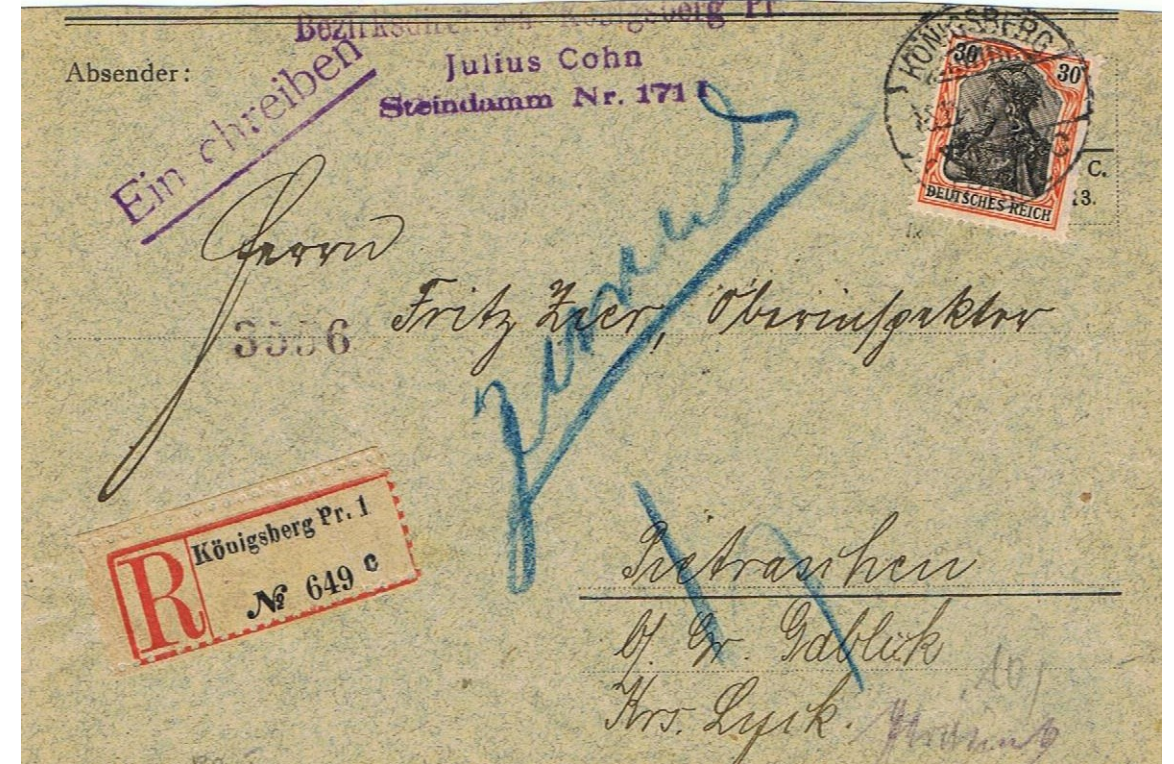 Königsberg Pr
Absender:
Julius Cohn
Steindamm Nr. 171 I
Ein chreiben
KÖNIGSBERG
30 30
DEUTSCHES REICH
C.
13.
Herrn
Fritz Zier, Oberinspektor
3556
Königsberg Pr. 1
R
№ 649 c
Pietraschen
b/ Gr. Gablick
Krs. Lyck.